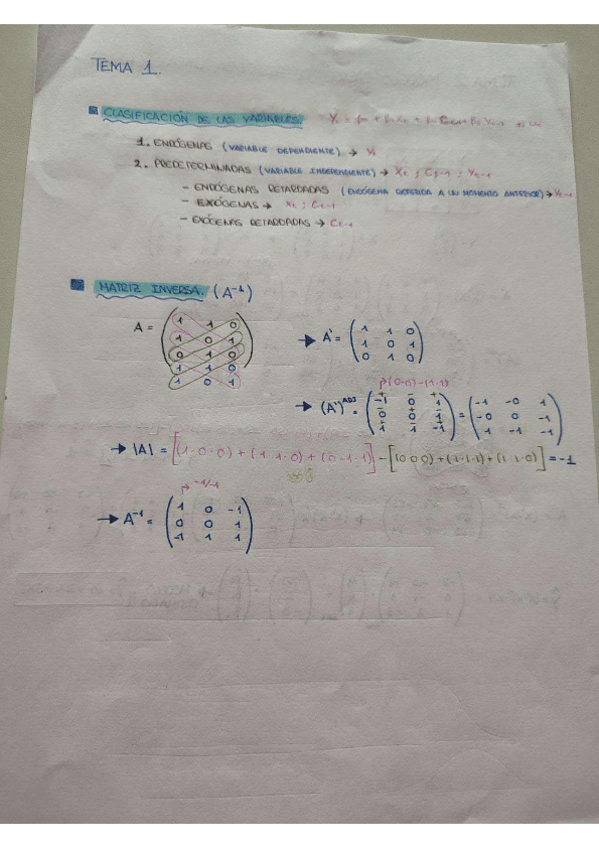 TEMA 1.
CLASIFICACIÓN DE LAS VARIABLES.
1. ENDÓGENAS (VARIABLE DEPENDIENTE) → Yt
2. PREDETERMINADAS (VARIABLE INDEPENDIENTE) → Xt ; Ct-1 ; Yt-1
- ENDÓGENAS RETARDADAS (ENDÓGENA REFERIDA A UN MOMENTO ANTERIOR) → Yt-1
- EXÓGENAS → Xt ; Ct-1
- EXÓGENAS RETARDADAS → Ct-1
MATRIZ INVERSA. (A⁻¹)
A =
1 1 0
1 0 1
0 1 0
1 1 0
1 0 1
→ A' =
1 1 0
1 0 1
0 1 0
(0·0)-(1·1)
→ (A')ᴬᴰᴶ =
-1 0 1
0 0 1
1 1 -1
=
-1 -0 1
-0 0 -1
1 -1 -1
→ |A| = [(1·0·0) + (1·1·0) + (0·1·1)] - [(0·0·0) + (1·1·1) + (1·1·0)] = -1
-1/-1
→ A⁻¹ =
1 0 -1
0 0 1
-1 1 1